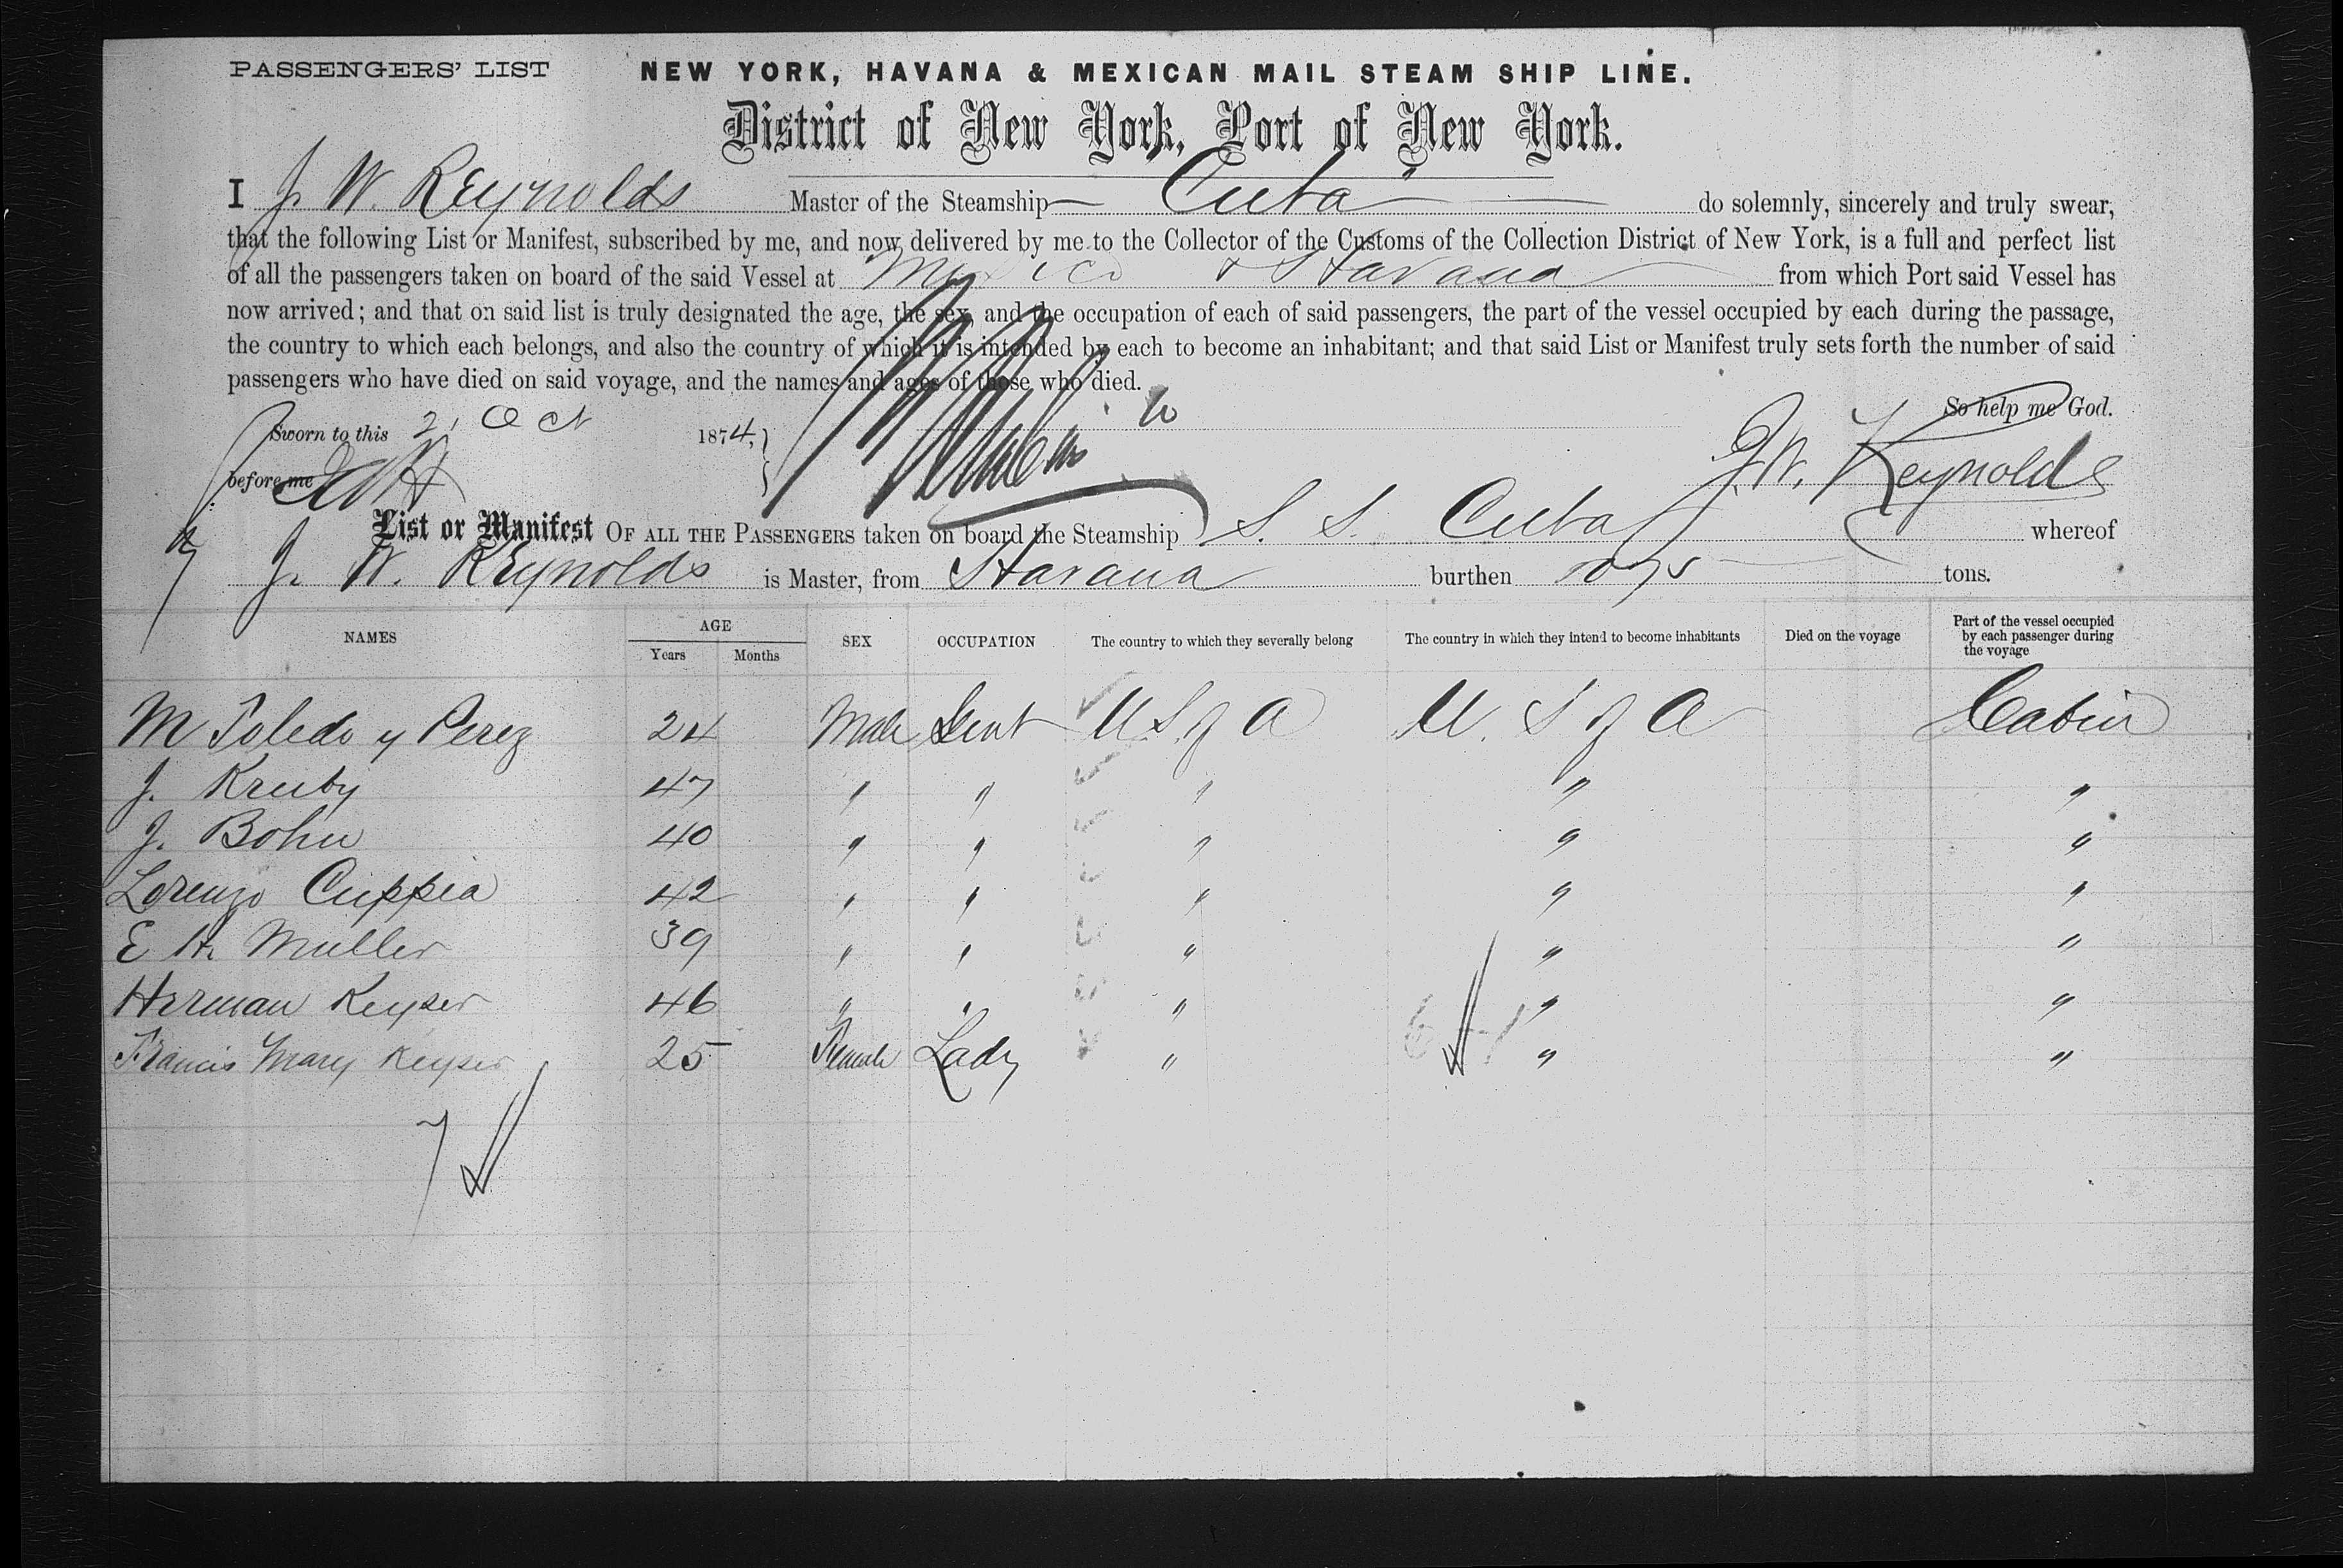 PASSENGERS' LIST NEW YORK, HAVANA & MEXICAN MAIL STEAM SHIP LINE.
District of New York, Port of New York.
I J. W. Reynolds Master of the Steamship Cuba do solemnly, sincerely and truly swear,
that the following List or Manifest, subscribed by me, and now delivered by me to the Collector of the Customs of the Collection District of New York, is a full and perfect list
of all the passengers taken on board of the said Vessel at Mexico & Havana from which Port said Vessel has
now arrived; and that on said list is truly designated the age, the sex, and the occupation of each of said passengers, the part of the vessel occupied by each during the passage,
the country to which each belongs, and also the country of which it is intended by each to become an inhabitant; and that said List or Manifest truly sets forth the number of said
passengers who have died on said voyage, and the names and ages of those who died.
So help me God.
Sworn to this 2 Oct 1874,
before me J. W. Reynolds
List or Manifest OF ALL THE PASSENGERS taken on board the Steamship S. S. Cuba whereof
J. W. Reynolds is Master, from Havana burthen tons.
NAMES AGE Years Months SEX OCCUPATION The country to which they severally belong The country in which they intend to become inhabitants Died on the voyage Part of the vessel occupied by each passenger during the voyage
M Toledo y Perez 24 Male Gent U S of A U. S of A Cabin
J. Kruby 47 " " " " "
J. Bohn 40 " " " " "
Lorenzo Cuppia 42 " " " " "
E H. Muller 39 " " " " "
Herman Keyser 46 " " " " "
Francis Mary Keyser 25 Female Lady " " "
7